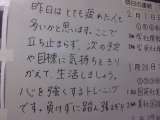 昨日はとても疲れた人も
多いかと思います。ここで
立ち止まらず、次の予定
や目標に気持ちをきり
かえて、生活しましょう。
心を強くするトレーニング
です。負けずに踏ん張るぞ！
明日の連絡